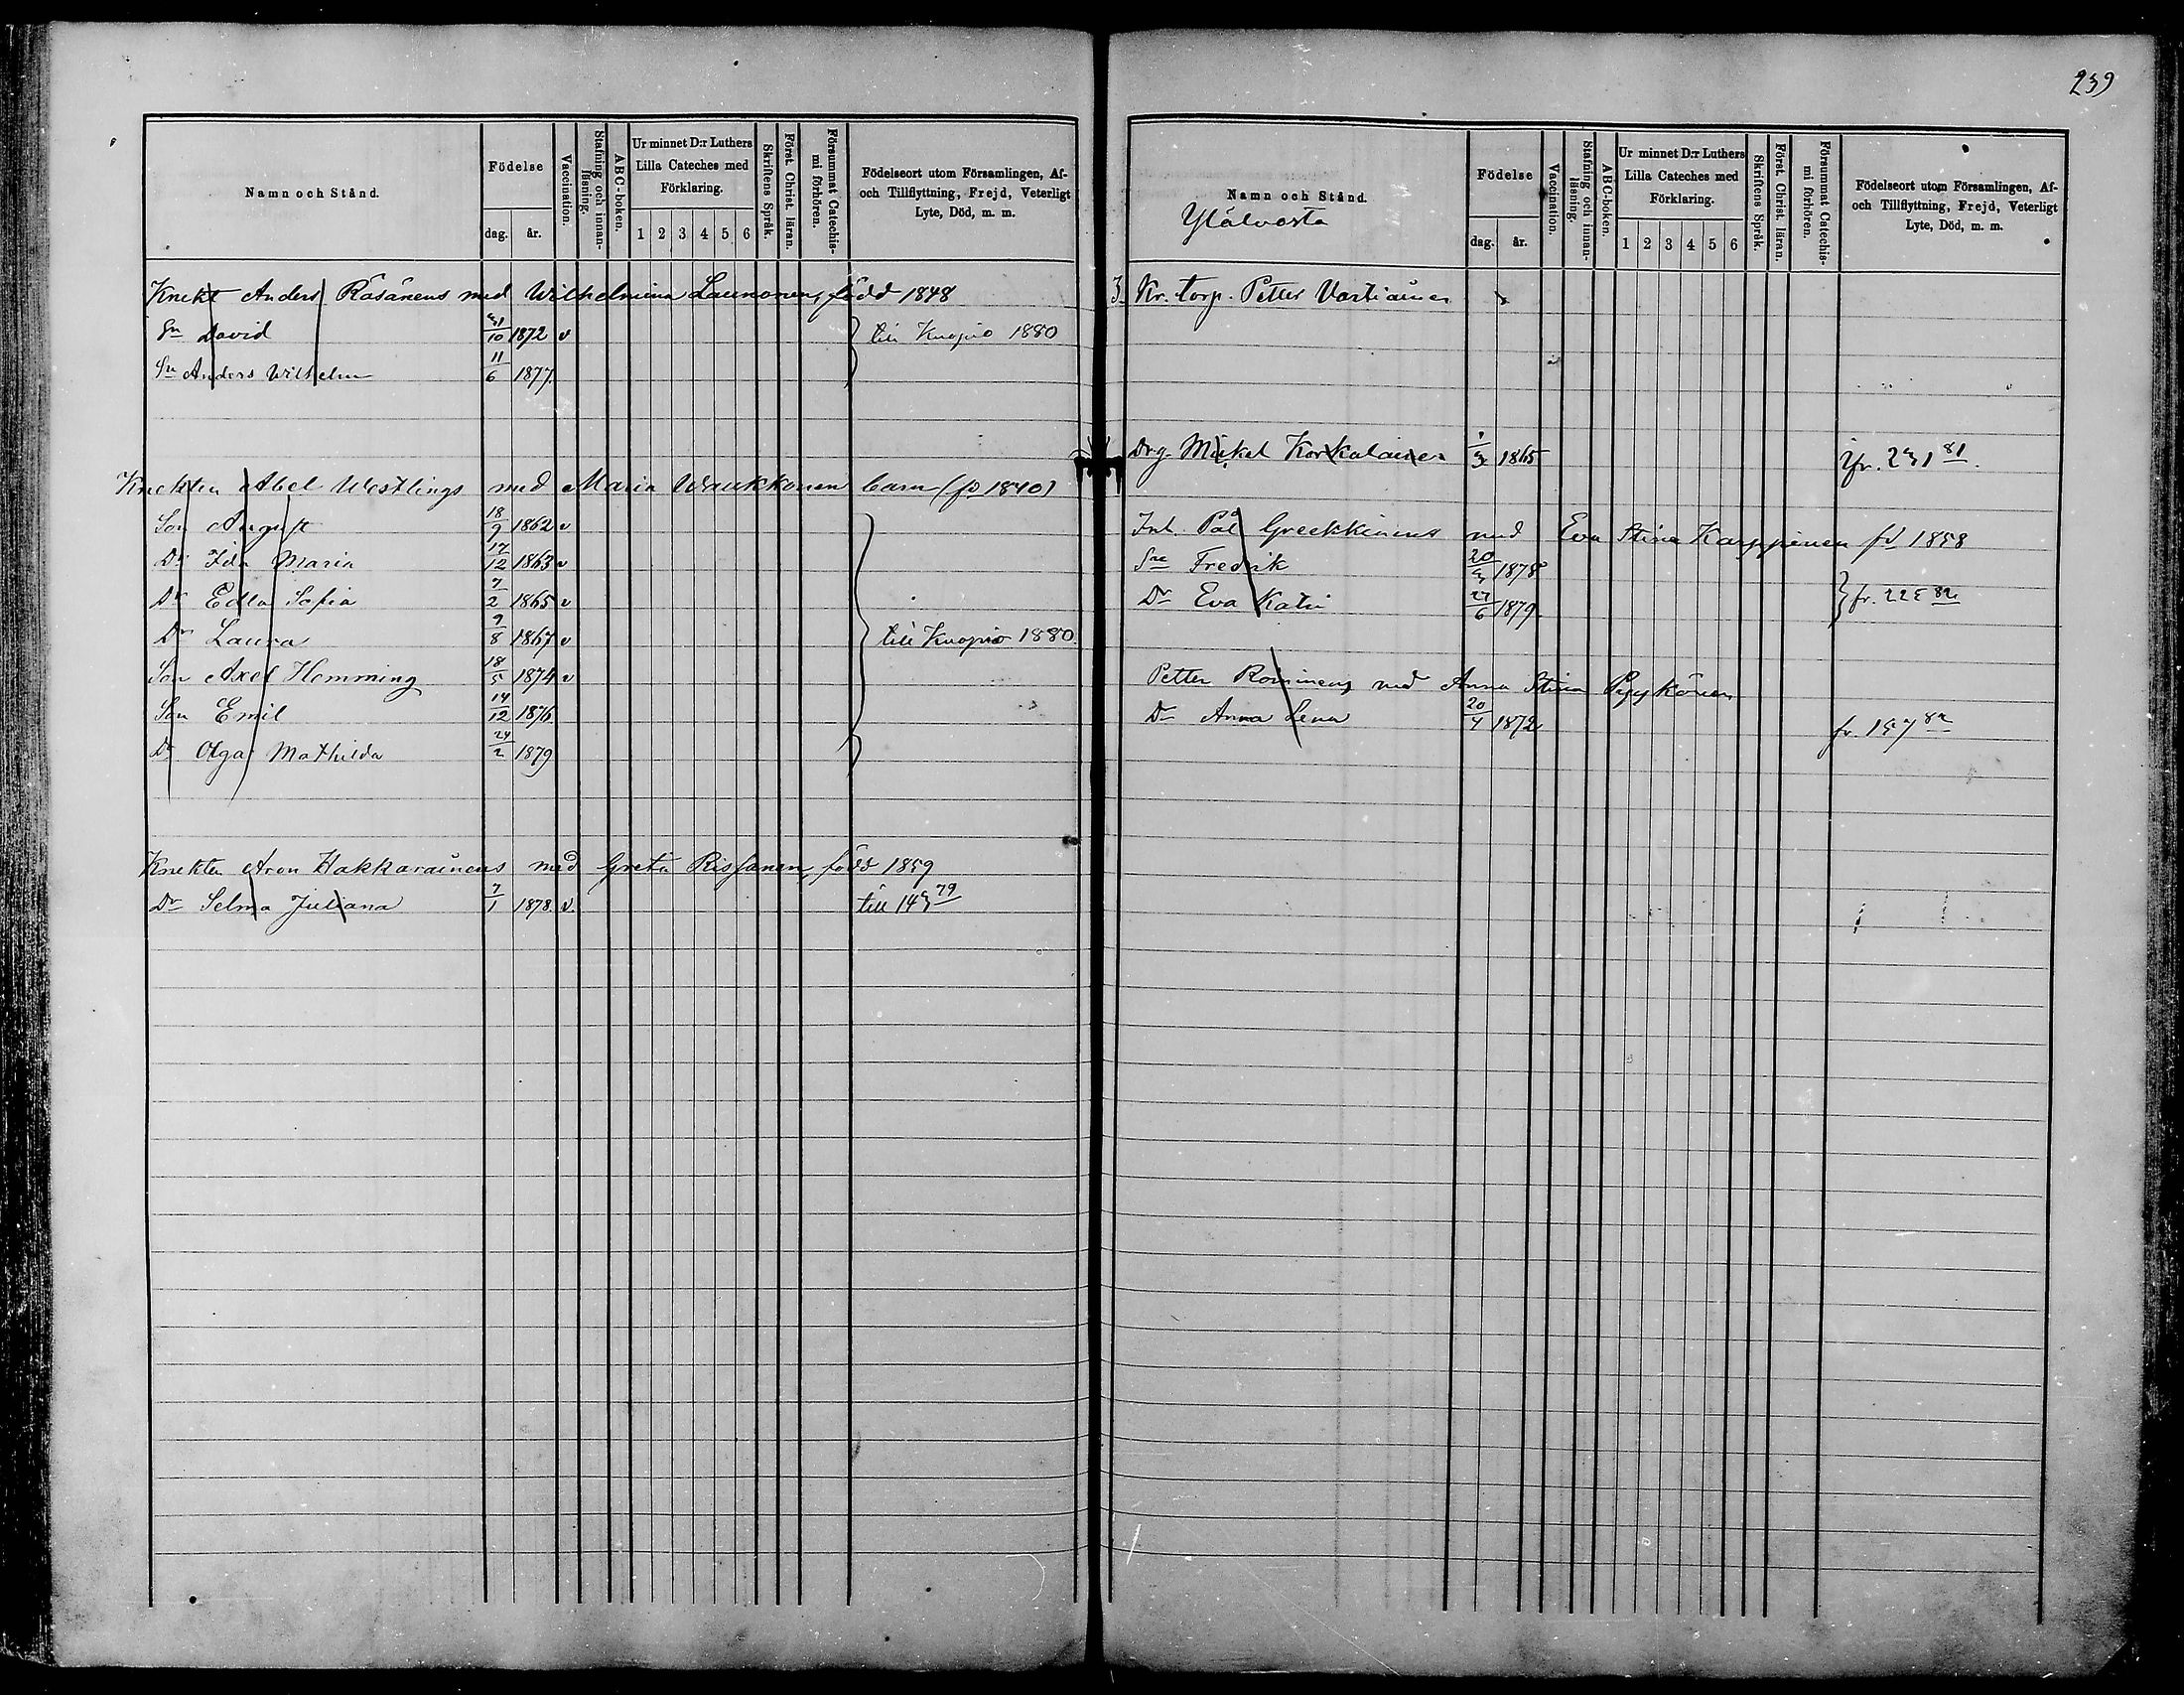 239
Namn och Stånd.
Födelse
dag. år.
Vaccination.
Stafning och innanläsning.
ABC-boken.
Ur minnet D:r Luthers Lilla Cateches med Förklaring.
1 2 3 4 5 6
Skriftens Språk.
Först. Christ. läran.
Försummat Catechismi förhören.
Födelseort utom Församlingen, Af- och Tillflyttning, Frejd, Veterligt Lyte, Död, m. m.
Knekt Anders Räsänens med Wilhelmina Launonen, född 1848
Sn David 31/10 1872 v till Kuopio 1880
Sn Anders Wilhelm 11/6 1877.
Knekten Abel Westlings med Maria Waukkonen barn (fd 1840)
Son August 18/9 1862 v
Dr Ida Maria 17/12 1863 v
Dr Edla Sofia 7/2 1865 v
Dr Laura 9/8 1867 v till Kuopio 1880.
Son Axel Hemming 18/5 1874 v
Son Emil 14/12 1876
Dr Olga Mathilda 24/2 1879
Knekten Aron Hakkarainens med Greta Rissanen, född 1859
Dr Selma Juliana 7/1 1878. v. till 143 79
Namn och Stånd.
Ylälvosta
Födelse
dag. år.
Vaccination.
Stafning och innanläsning.
ABC-boken.
Ur minnet D:r Luthers Lilla Cateches med Förklaring.
1 2 3 4 5 6
Skriftens Språk.
Först. Christ. läran.
Försummat Catechismi förhören.
Födelseort utom Församlingen, Af- och Tillflyttning, Frejd, Veterligt Lyte, Död, m. m.
3. Kr. torp. Petter Vartiainen
Drg. Mickel Korkalainen 1865 fr. 231 81.
Inh. Pål Greekkinens med Eva Stina Karppinen fd 1858
Sne Fredrik 20/3 1878
Dr Eva Katri 27/6 1879. fr. 225 82
Petter Roininens med Anna Stina Pyykönen
Dr Anna Lena 20/4 1872 fr. 157 82